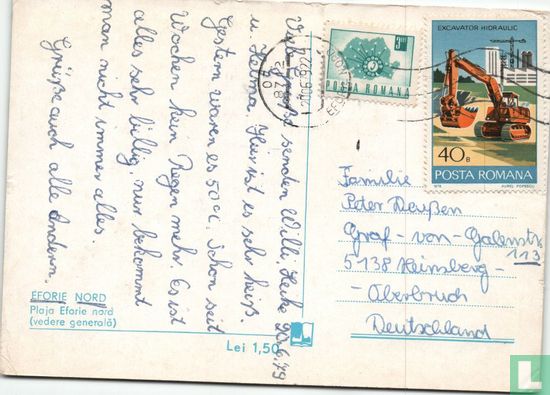 Viele Grüße senden Willi, Heike
u. Helma. Hier ist es sehr heiß.
Gestern waren es 50°C. Schon seit
Wochen kein Regen mehr. Es ist
alles sehr billig, nur bekommt
man nicht immer alles.
Grüße auch alle Anderen.
20.6.79
EFORIE NORD
Plaja Eforie nord
(vedere generală)
Lei 1,50
POSTA ROMANA
EXCAVATOR HIDRAULIC
40 B
POSTA ROMANA
1978 AUREL POPESCU
Familie
Peter Deußen
Graf-von-Galenstr.
113
5138 Heinsberg-
Oberbruch
Deutschland